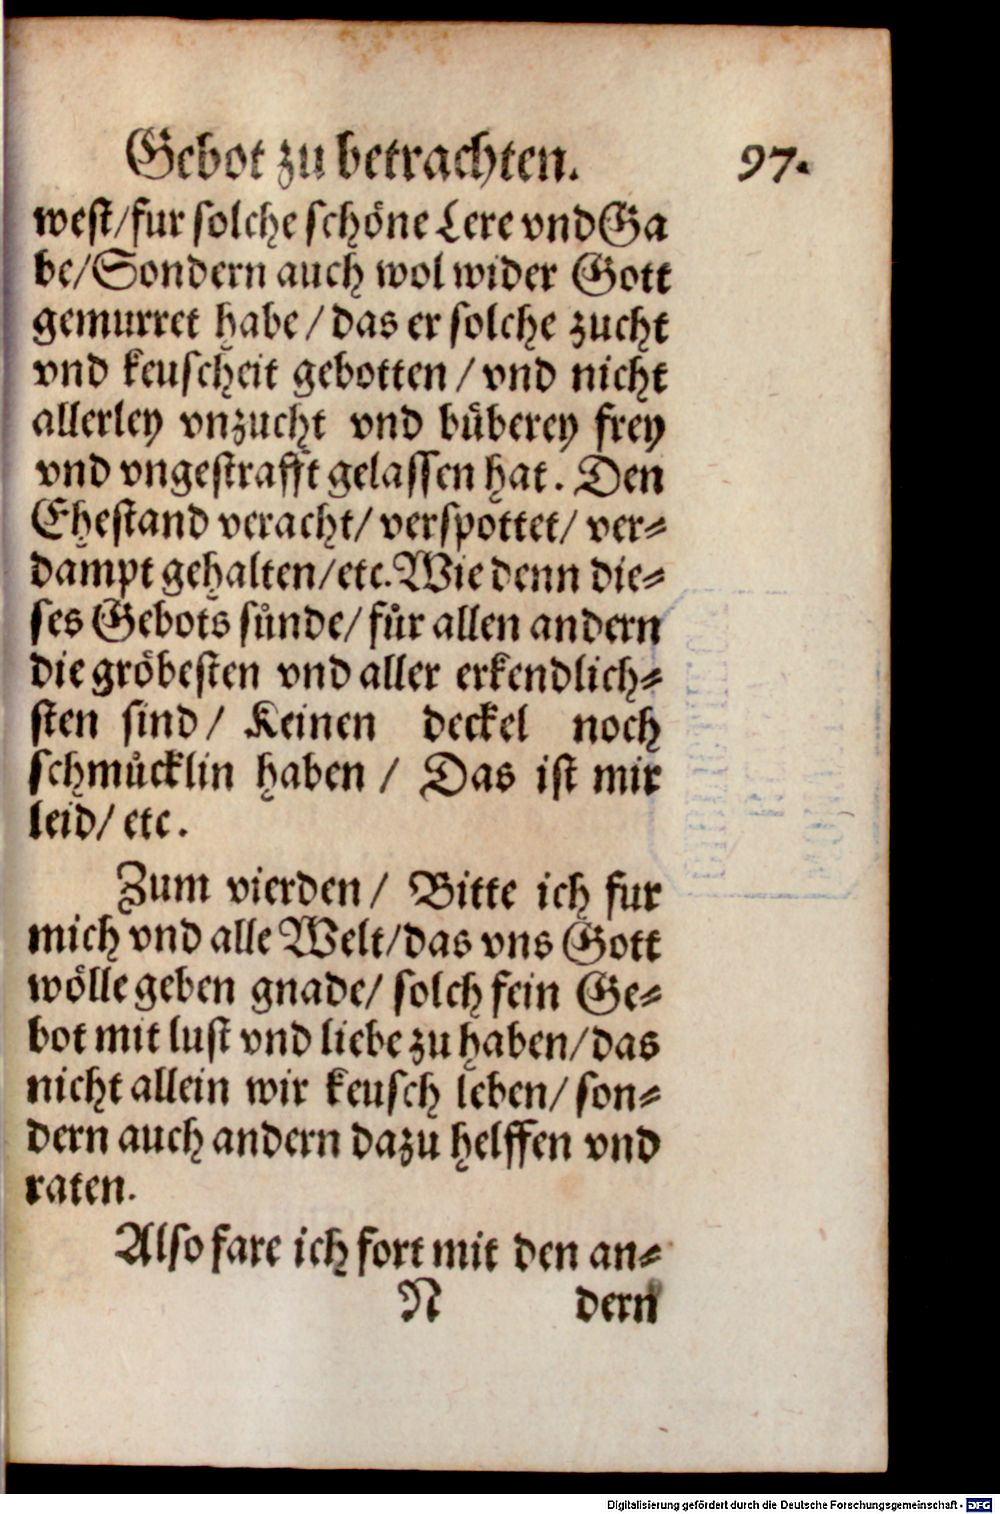 Gebot zu betrachten. 97.
west/fur solche schöne Lere vnd Ga
be/Sondern auch wol wider Gott
gemurret habe/das er solche zucht
vnd keuscheit gebotten/vnd nicht
allerley vnzucht vnd bůberey frey
vnd vngestrafft gelassen hat. Den
Ehestand veracht/verspottet/ver-
dampt gehalten/etc. Wie denn die-
ses Gebots sůnde/fůr allen andern
die gröbesten vnd aller erkendlich-
sten sind/ Keinen deckel noch
schmůcklin haben/ Das ist mir
leid/etc.
Zum vierden/ Bitte ich fur
mich vnd alle Welt/das vns Gott
wölle geben gnade/solch fein Ge-
bot mit lust vnd liebe zu haben/das
nicht allein wir keusch leben/son-
dern auch andern dazu helffen vnd
raten.
Also fare ich fort mit den an-
N dern
Digitalisierung gefördert durch die Deutsche Forschungsgemeinschaft - DFG